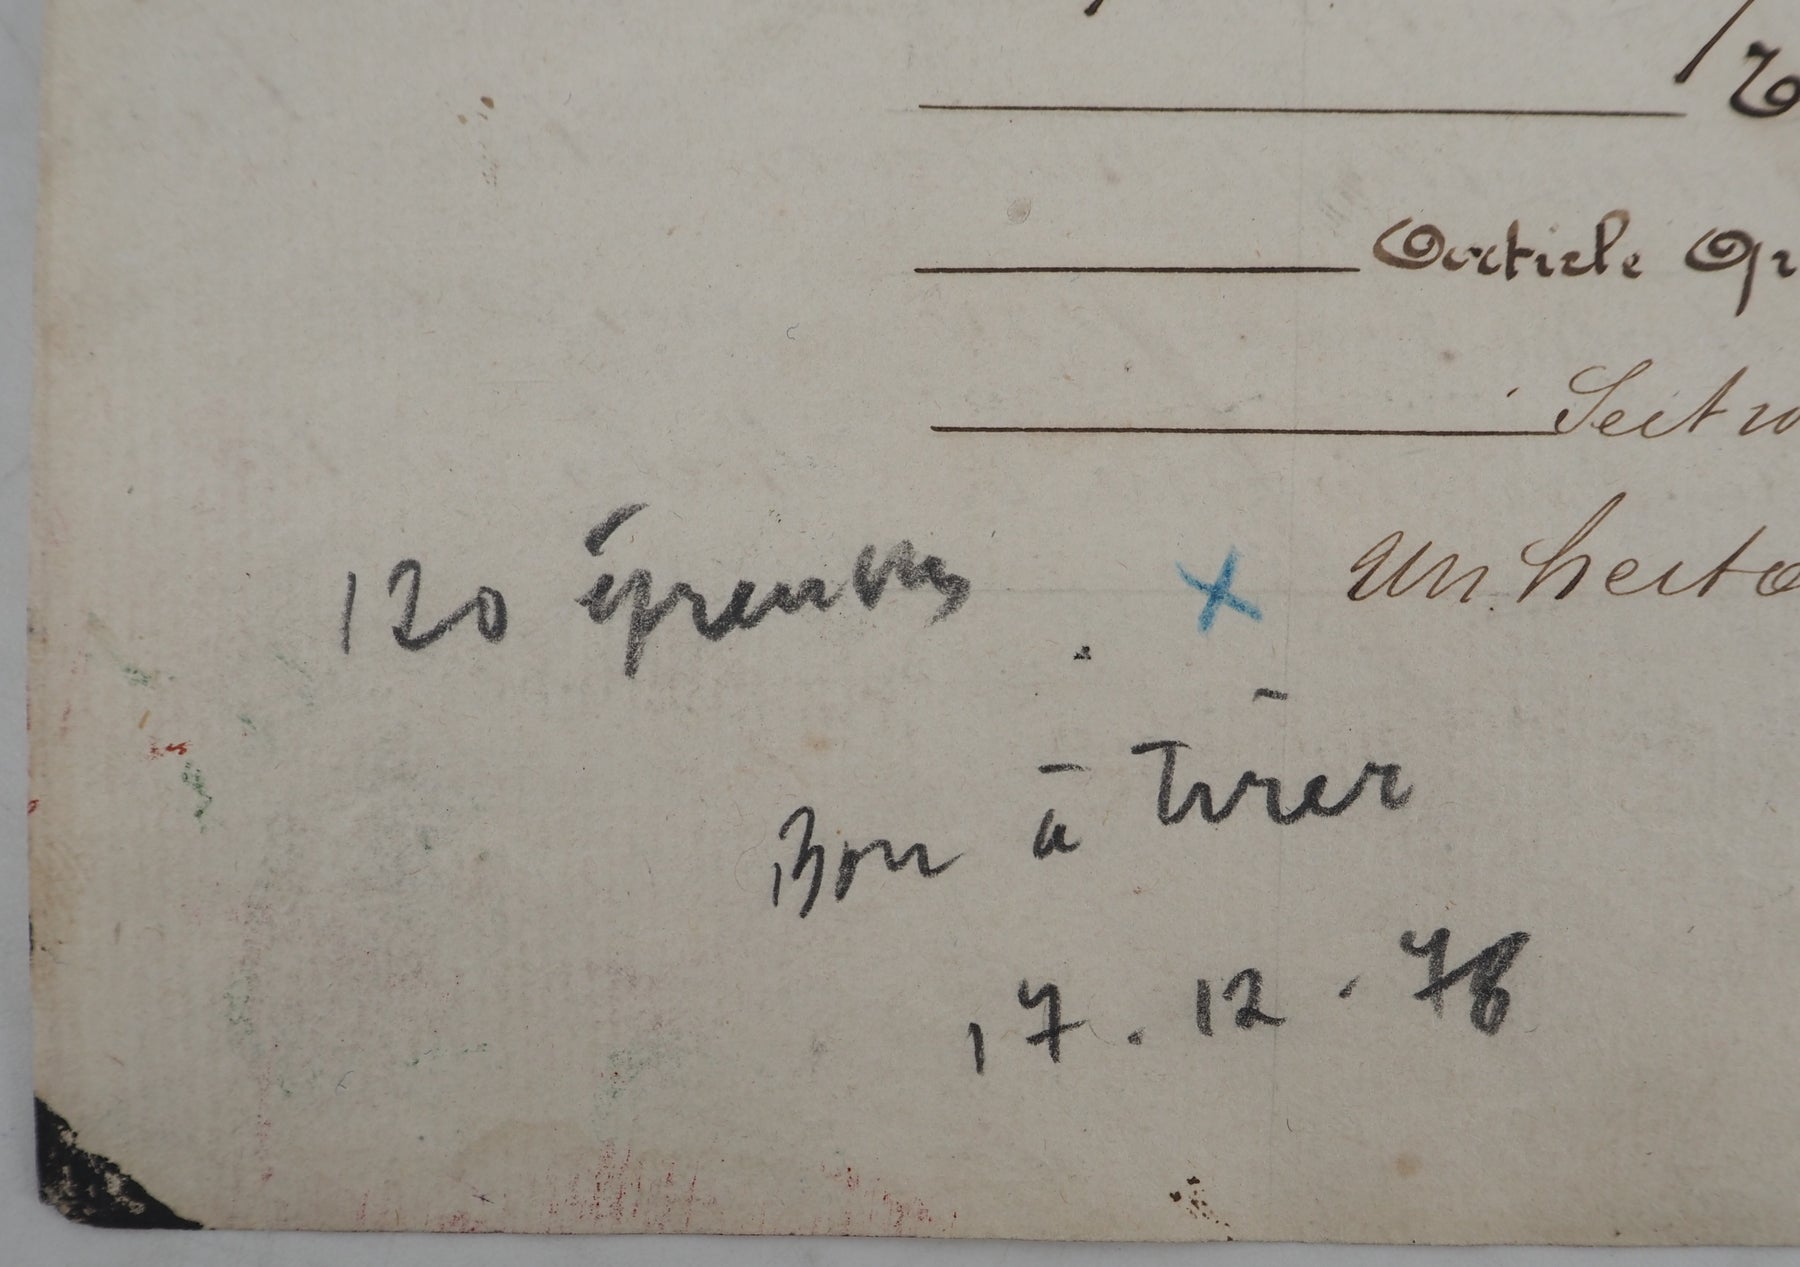 Article
Sect
un hecta
120 épreuves
Bon à Tirer
17.12.78